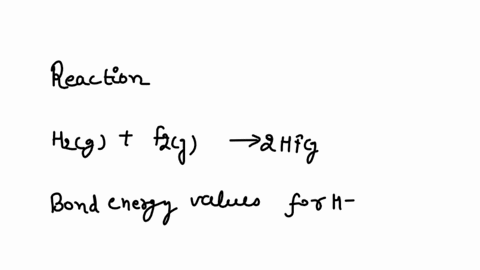 Reaction
H2(g) + f2(g) → 2Hfg
Bond energy values for H-